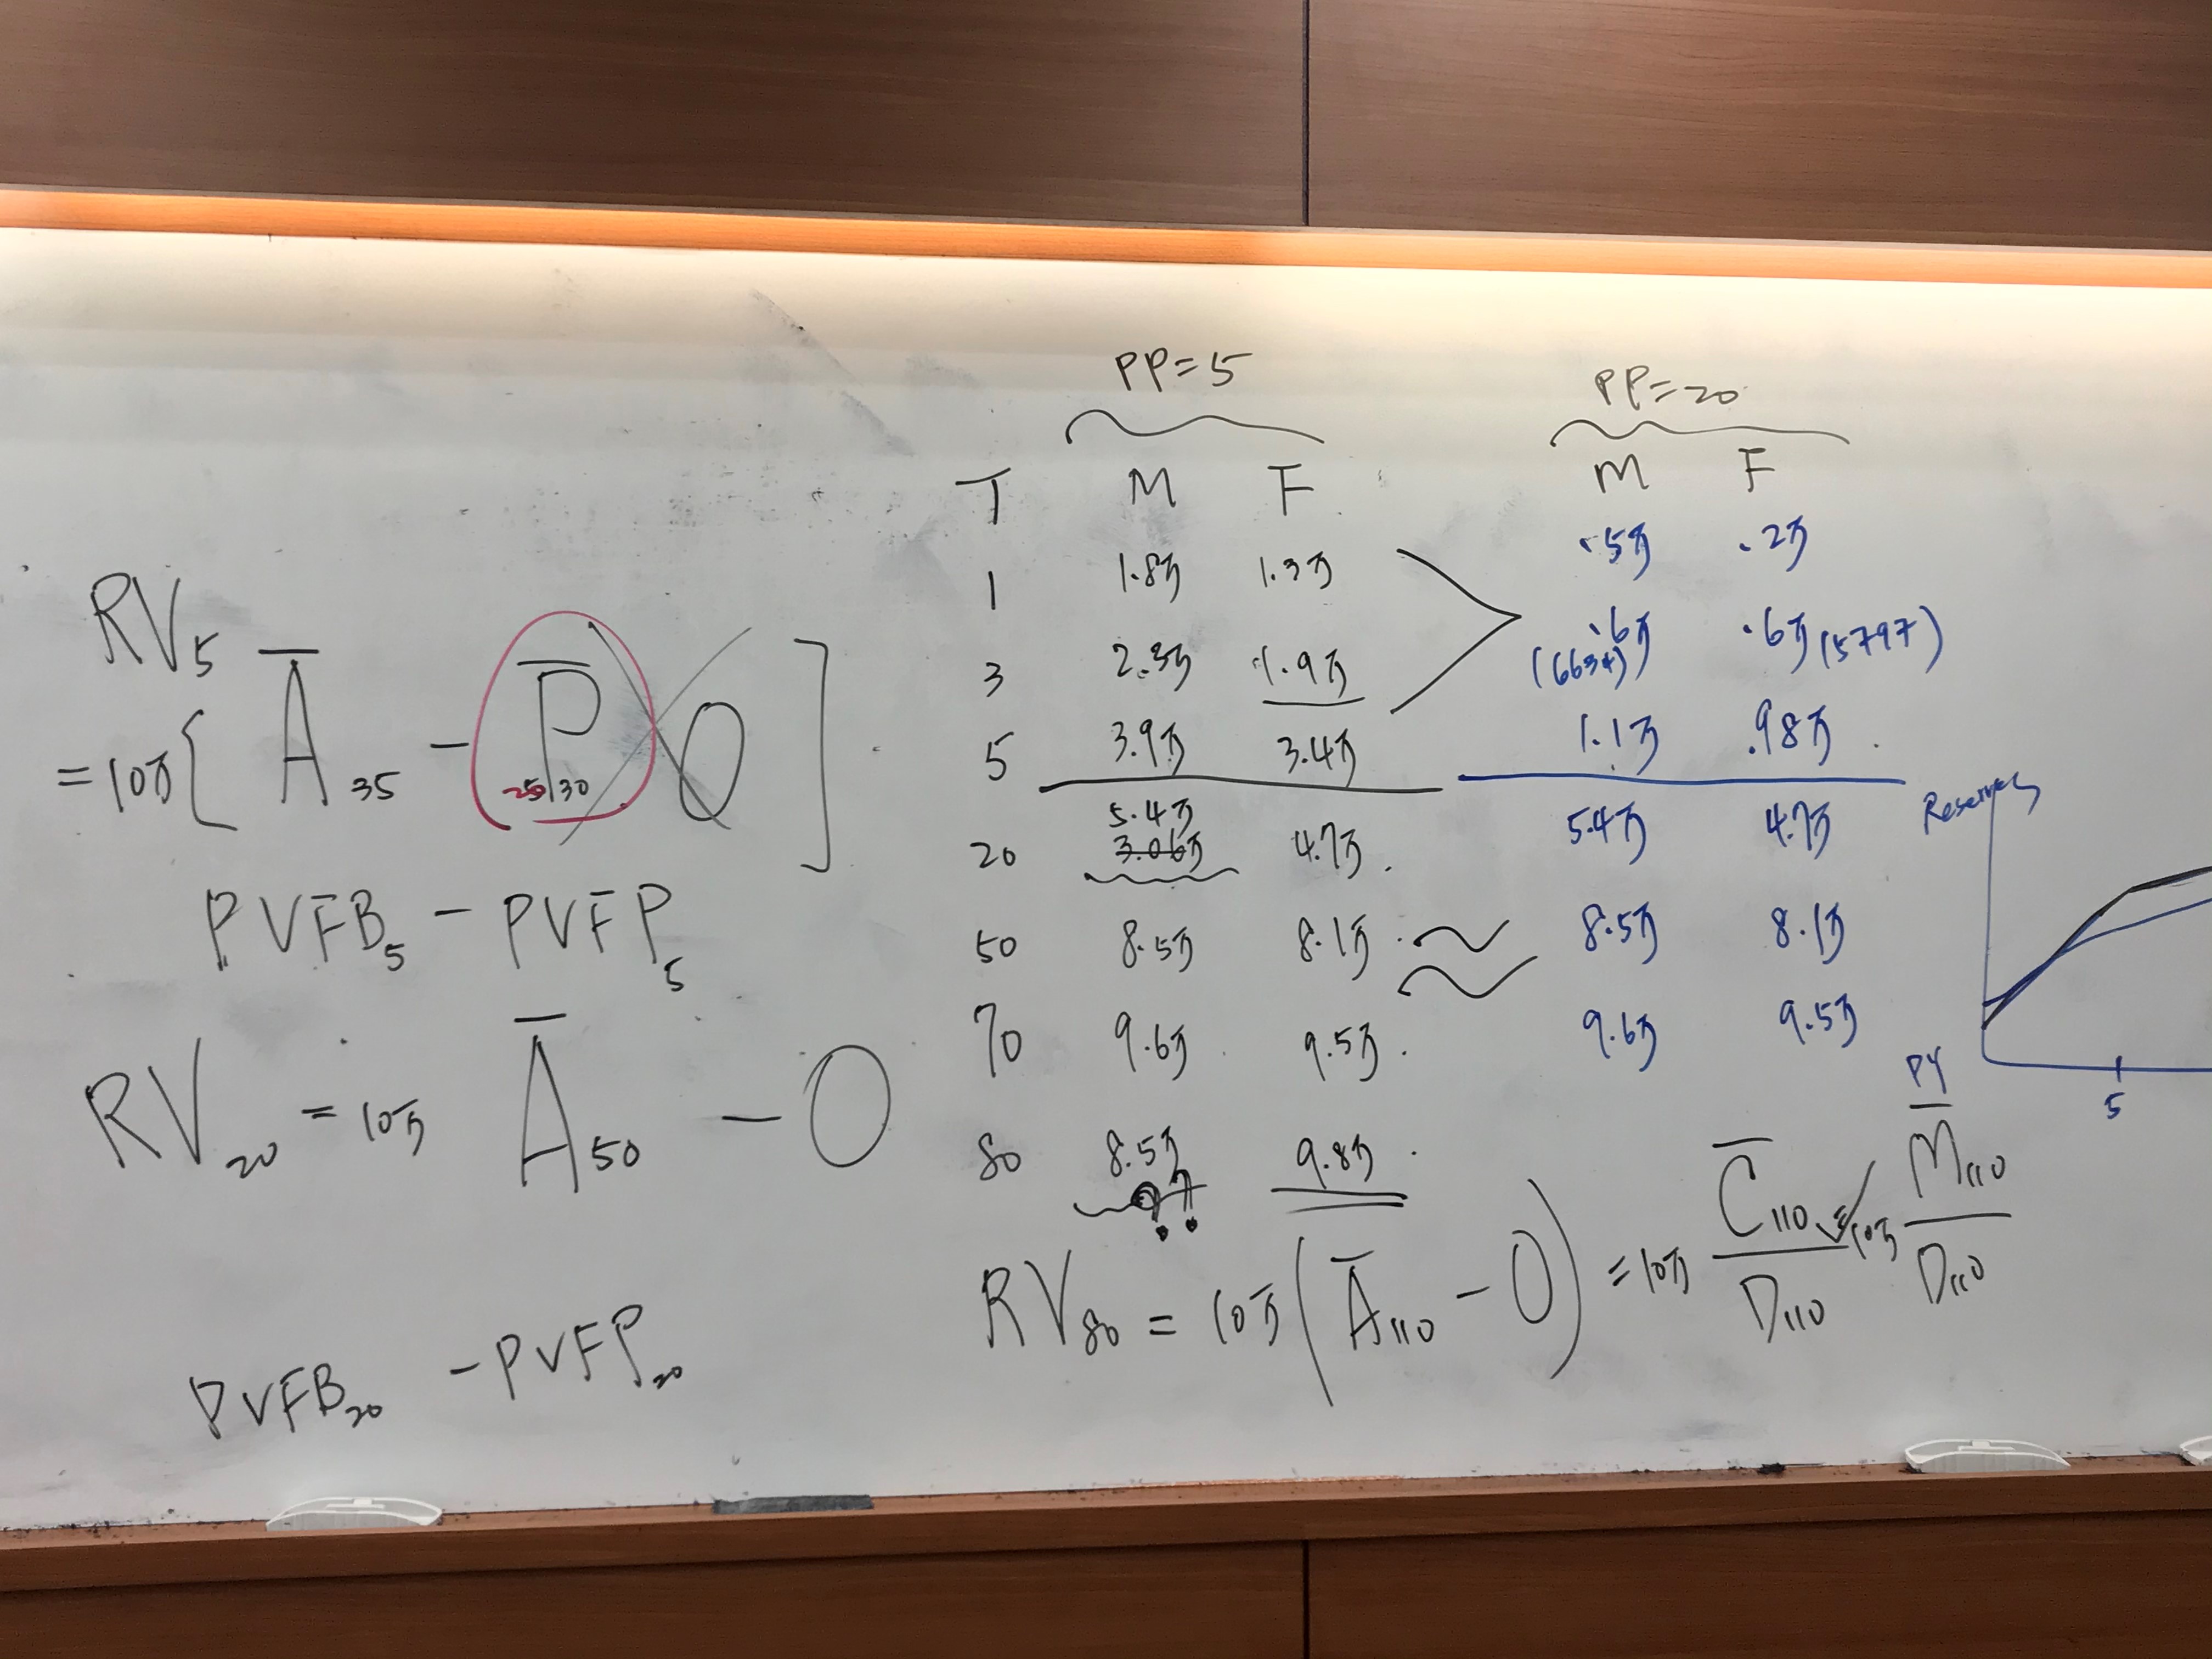 RV5
= 10万{ A̅35 - P̅25|30 0 ]
PVFB5 - PVFP5
RV20 = 10万 A̅50 - 0
PVFB20 - PVFP20
PP=5 PP=20
T M F M F
1 1.8万 1.3万 .5万 .2万
3 2.3万 1.9万 .6万 (6634) .6万 (5797)
5 3.9万 3.4万 1.1万 .98万
20 5.4万 3.06万 4.7万 5.4万 4.7万
50 8.5万 8.1万 8.5万 8.1万
70 9.6万 9.5万 9.6万 9.5万
80 8.5万 9.8万
RV80 = 10万(A̅110 - 0) = 10万 C̅110/D110 = 10万 M̅110/D110
Reserves
PY
5